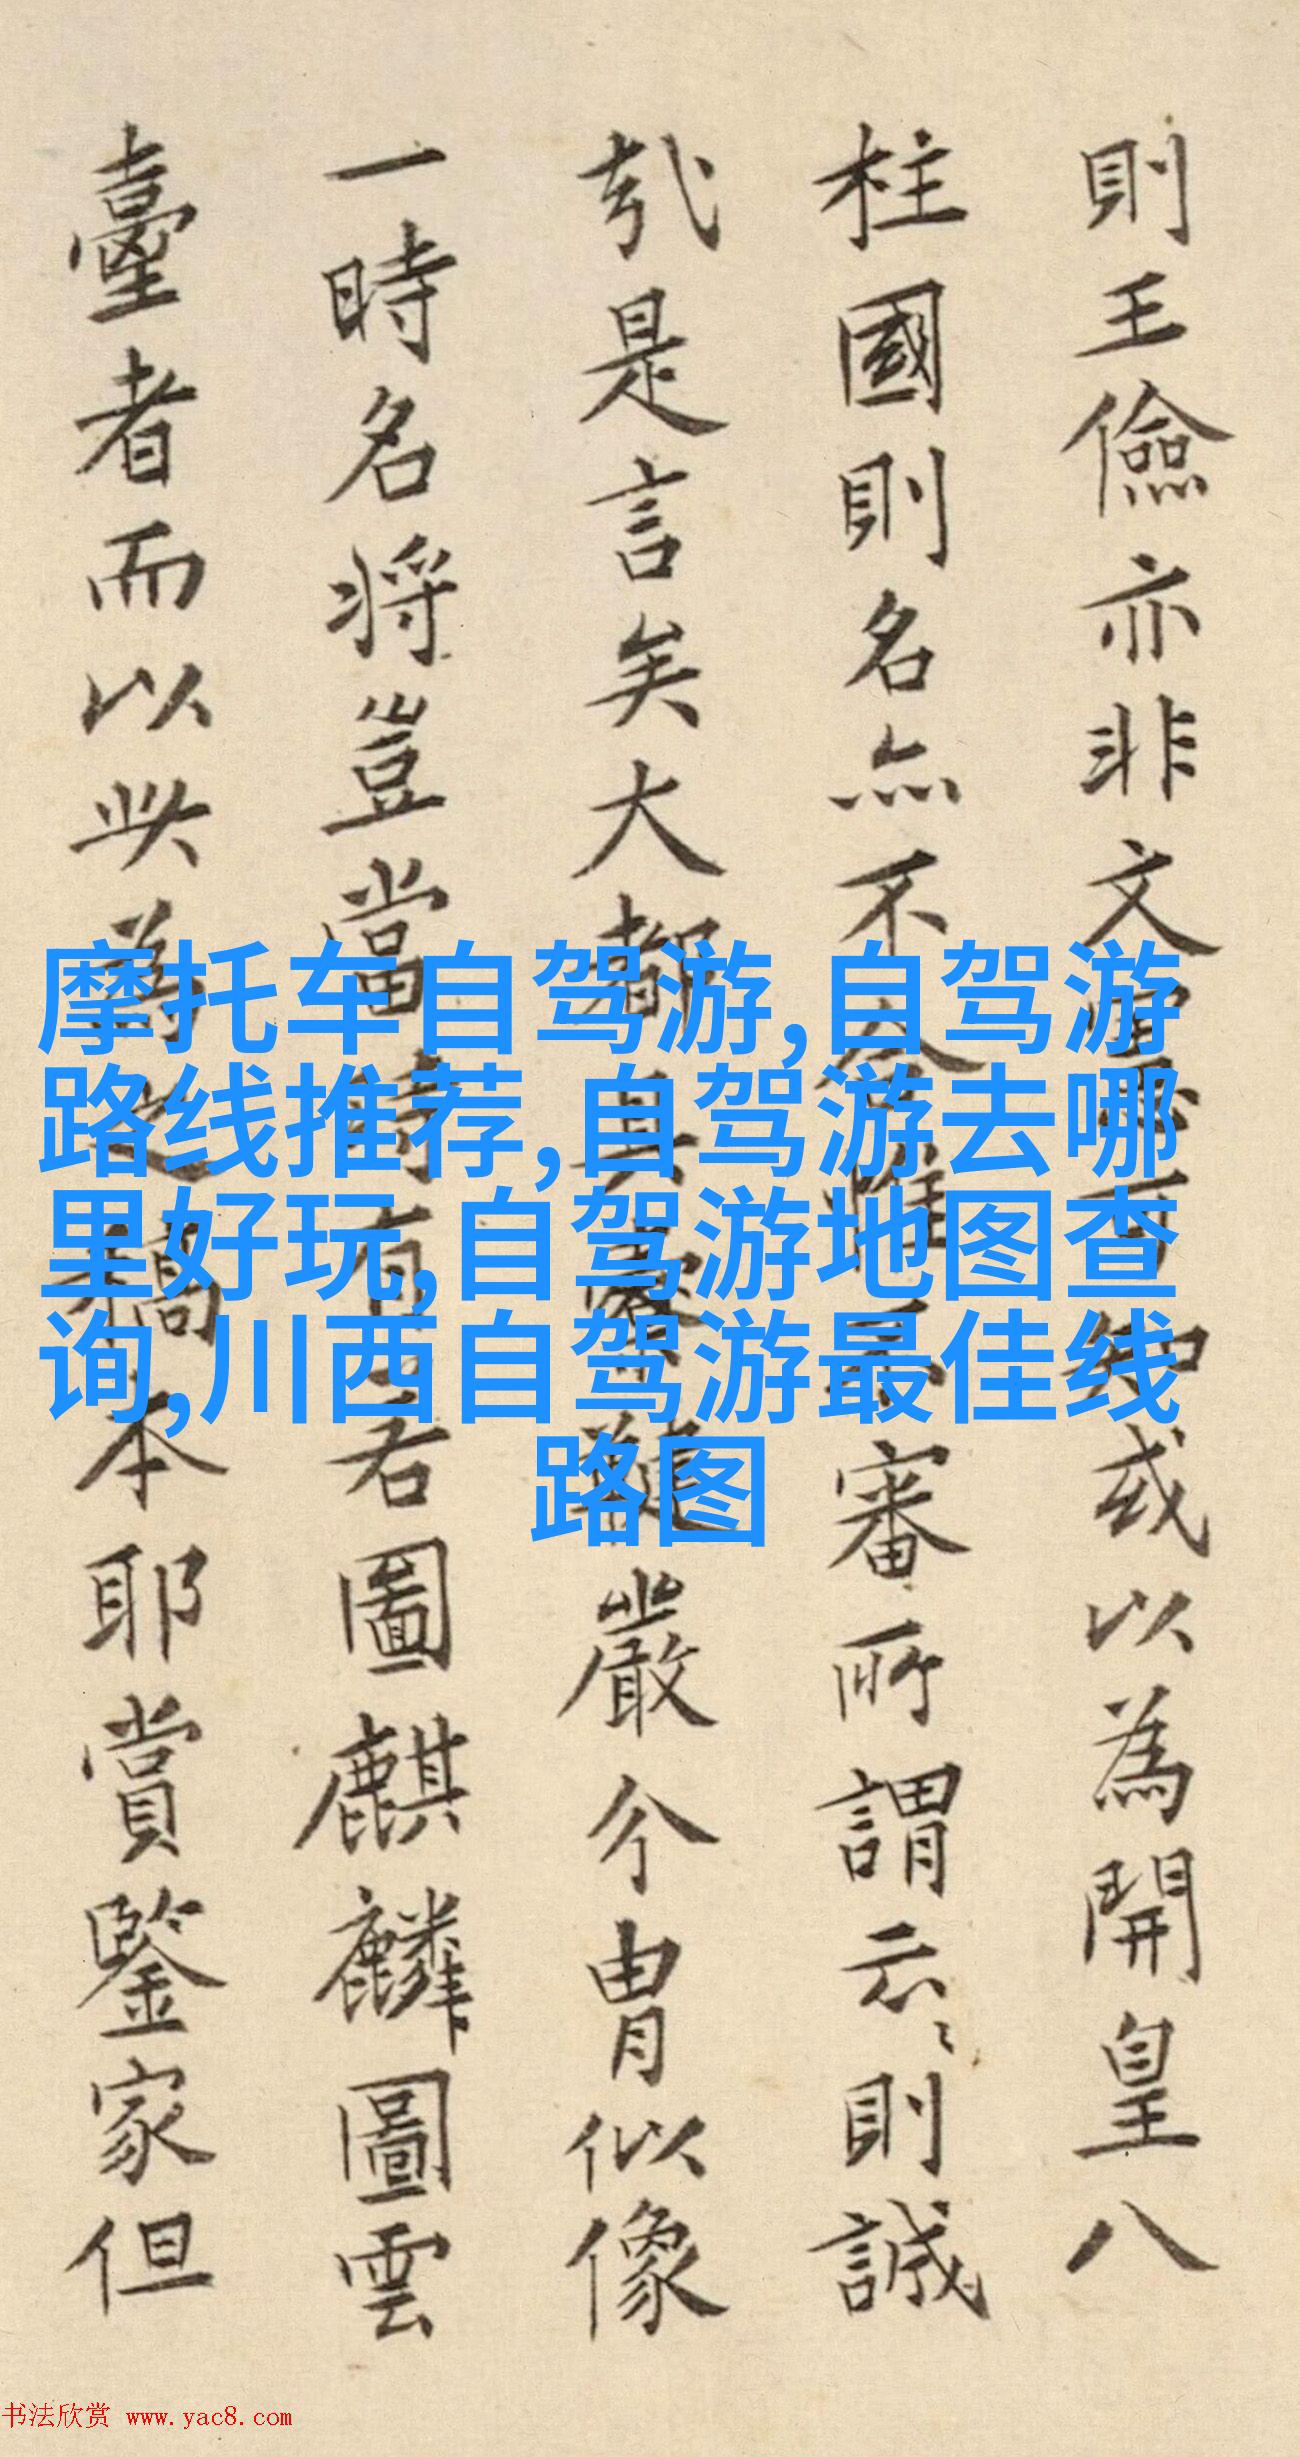 則王儉亦非文憲可知或以為開皇八
柱國則名亦不合惟不審所謂云〻則誠
哉是言矣大都其嚴介冑似像
一時名将豈當時有若圖麒麟圖雲
臺者而以此為之稿本耶賞鑒家但
摩托车自驾游,自驾游
路线推荐,自驾游去哪
里好玩,自驾游地图查
询,川西自驾游最佳线
路图
书法欣赏 www.yac8.com